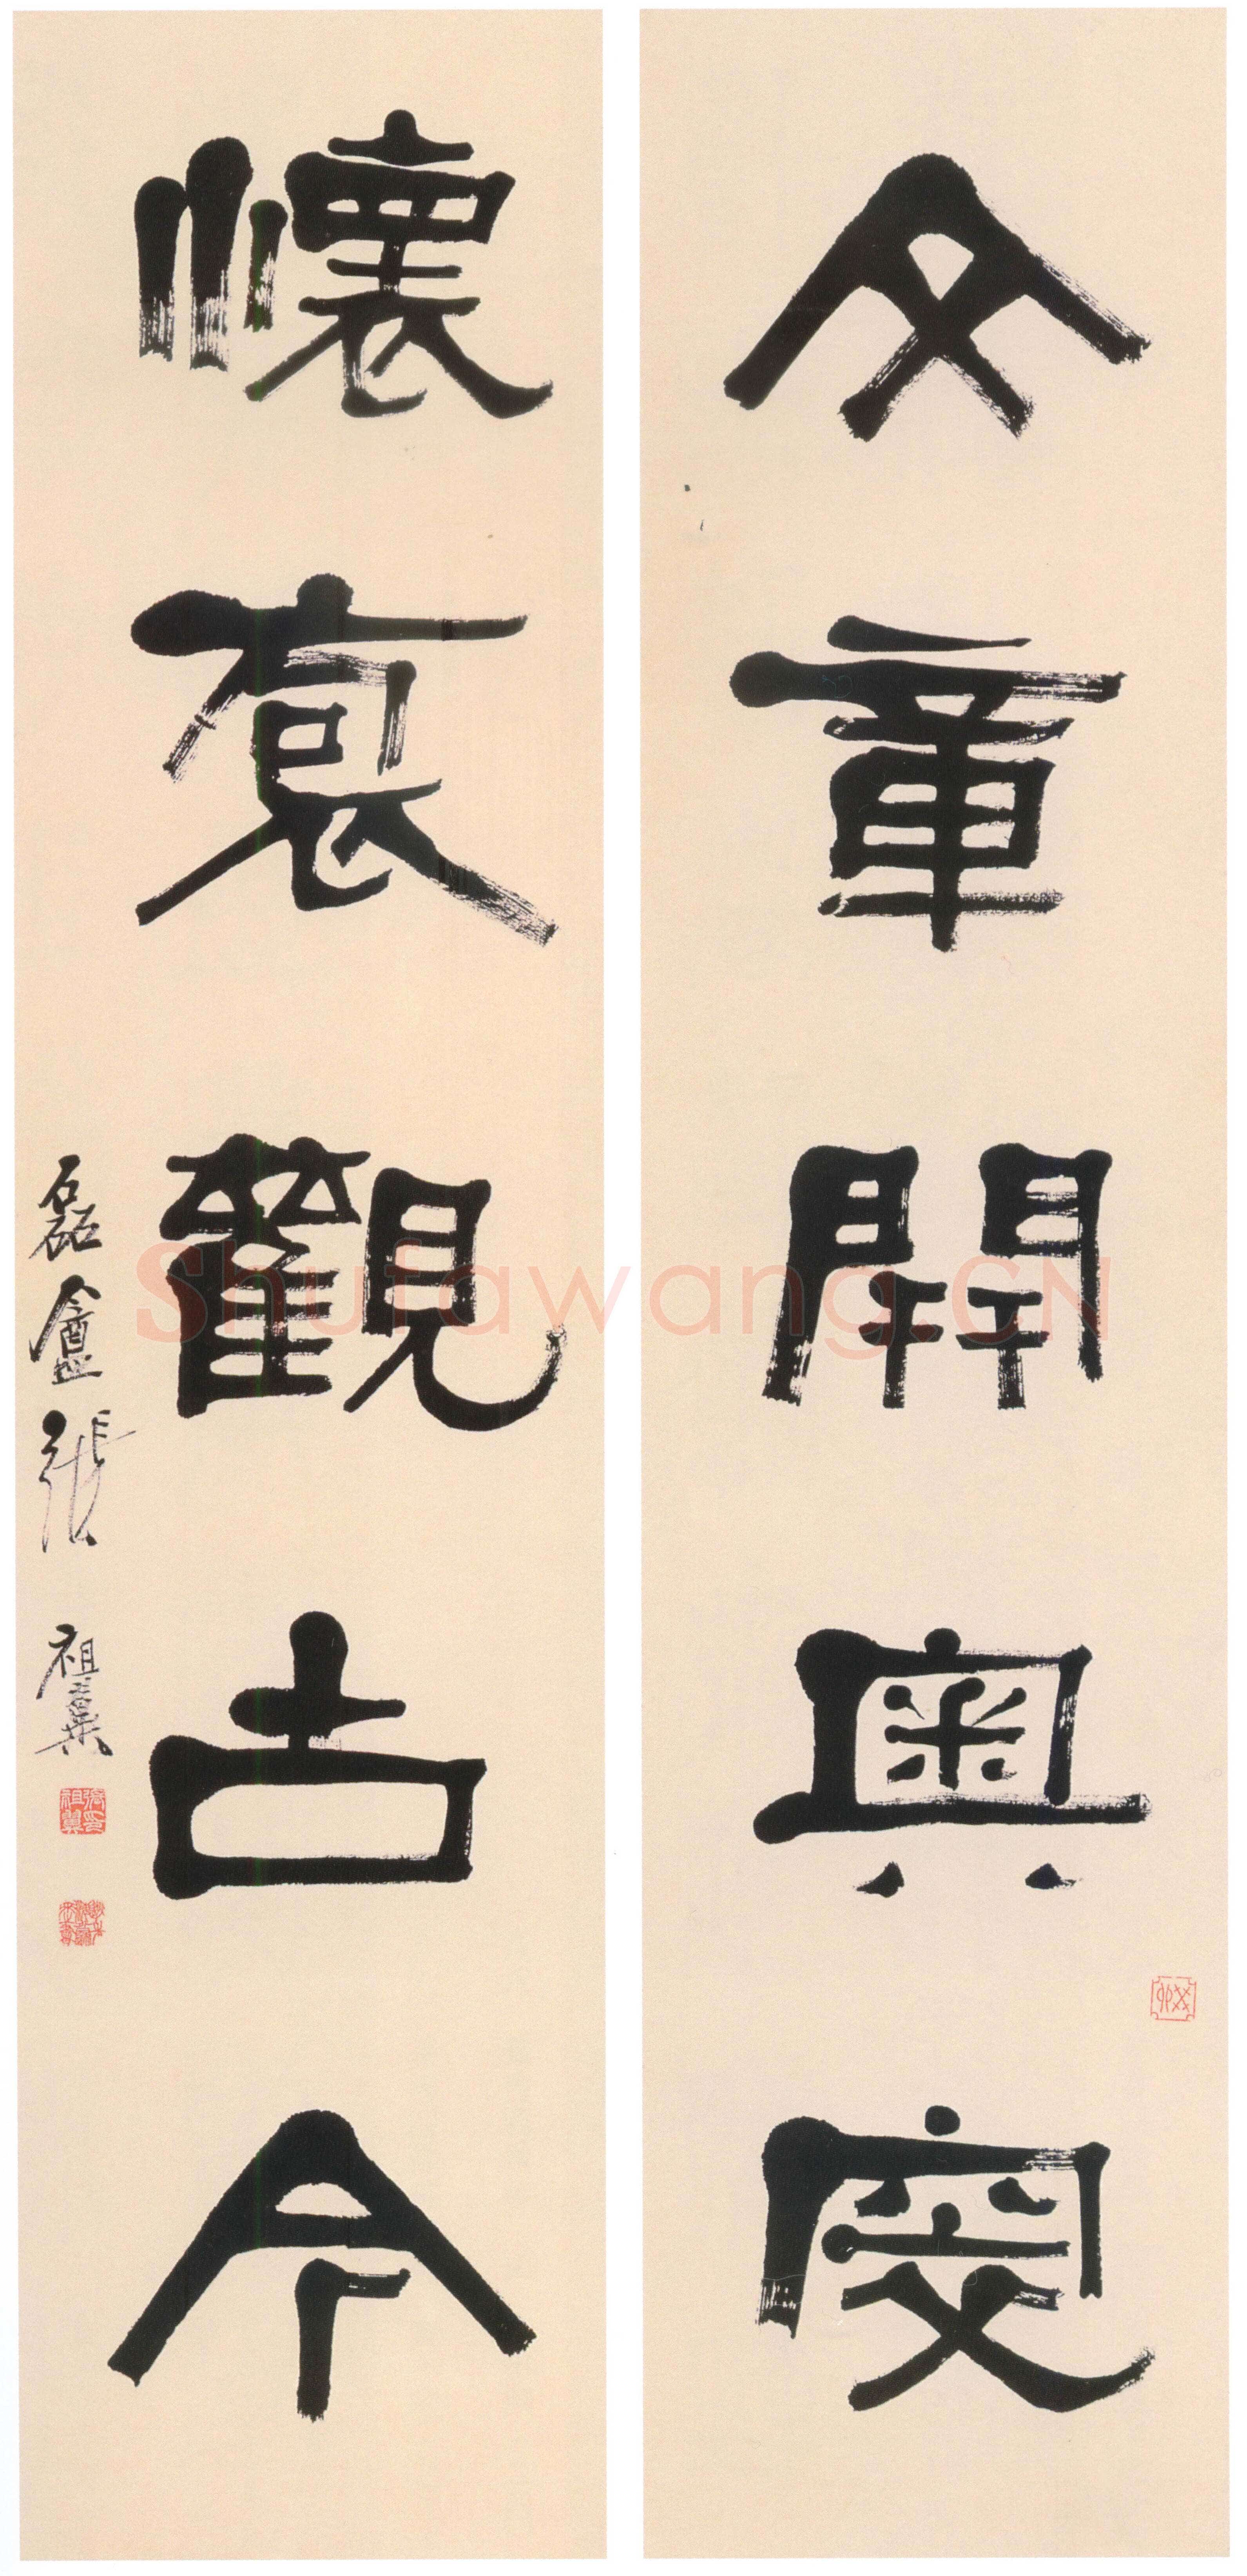 文章開奧窔
懷袌觀古今
磊盦張祖翼
張祖翼印
Shufawang.CN